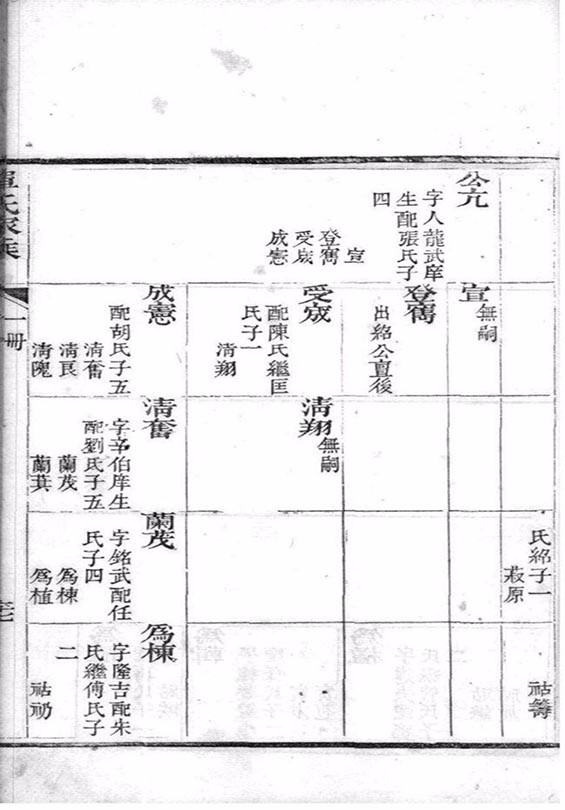 公亢
字人龍武庠
生配張氏子
四
宣
登雋
受宬
成憲
宣
無嗣
登雋
出紹公亶後
受宬
配陳氏繼匡
氏子一
淸翔
成憲
配胡氏子五
淸奮
淸良
淸隗
淸翔
無嗣
淸奮
字辛伯庠生
配劉氏子五
蘭茂
蘭萁
氏紹子一
菽原
蘭茂
字銘武配任
氏子四
爲棟
爲植
祜籌
爲棟
字隆吉配朱
氏繼傅氏子
二
祜礽
氏家族
一冊